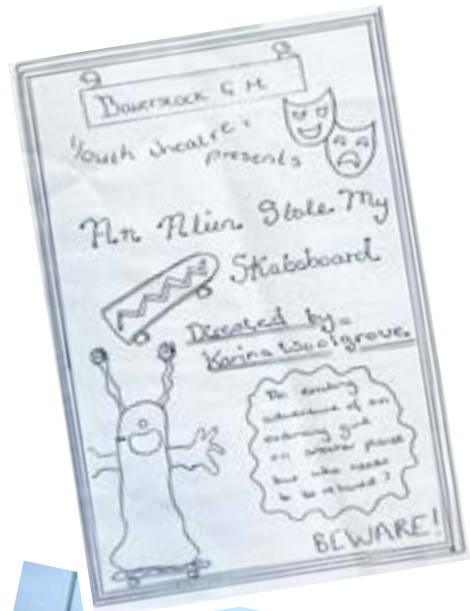 Baverstock G M
Youth Theatre
presents
An Alien Stole My
Skateboard
Directed by
Karina Woolgrove
The exciting
adventure of an
ordinary girl
on another planet
but who needs
to be rescued?
BEWARE!